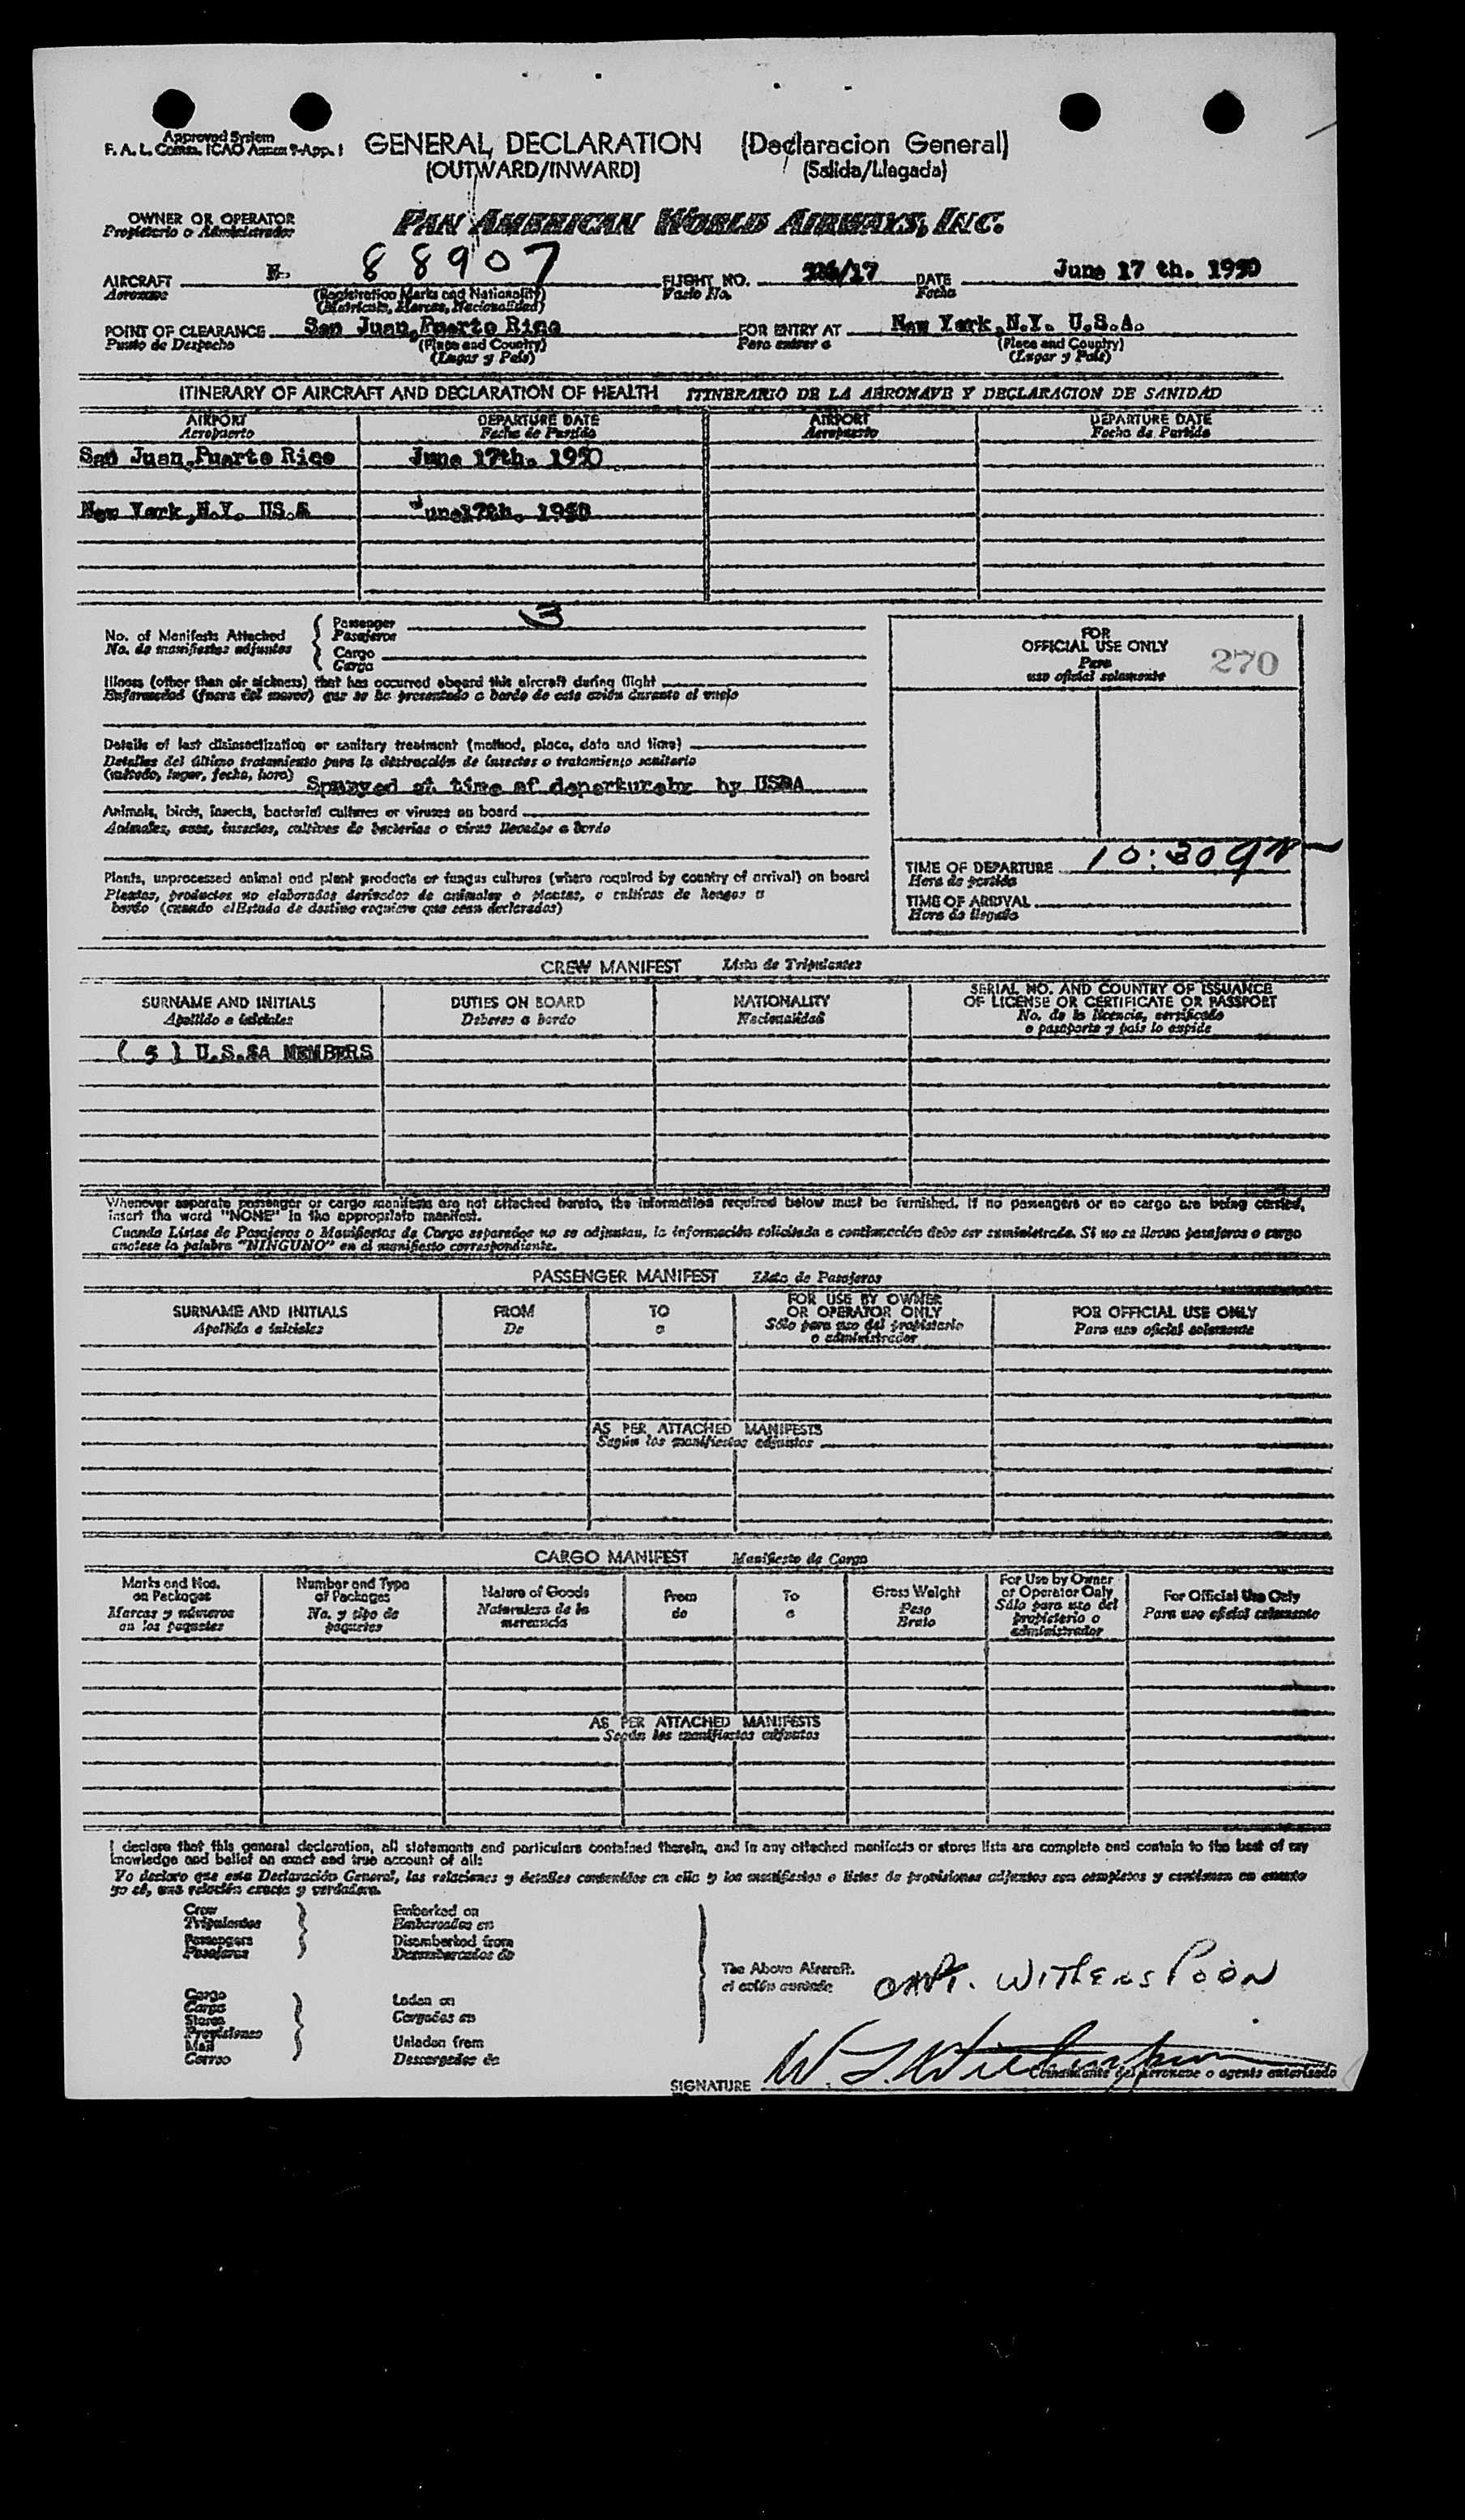 Approved System
F. A. L. Comm. ICAO Annex 9-App. 1
GENERAL DECLARATION (Declaracion General)
(OUTWARD/INWARD) (Salida/Llegada)
OWNER OR OPERATOR PAN AMERICAN WORLD AIRWAYS, INC.
Propietario o Administrador
AIRCRAFT N. 88907 FLIGHT NO. /17 DATE June 17 th. 1950
Aeronave (Registration Marks and Nationality) Vuelo No. Fecha
(Matricula, Marcas, Nacionalidad)
POINT OF CLEARANCE San Juan,Puerto Rico FOR ENTRY AT New York,N.Y. U.S.A.
Punto de Despacho (Place and Country) Para entrar a (Place and Country)
(Lugar y País) (Lugar y País)
ITINERARY OF AIRCRAFT AND DECLARATION OF HEALTH ITINERARIO DE LA AERONAVE Y DECLARACION DE SANIDAD
AIRPORT DEPARTURE DATE AIRPORT DEPARTURE DATE
Aeropuerto Fecha de Partida Aeropuerto Fecha de Partida
San Juan,Puerto Rico June 17th. 1950
New York,N.Y. US.A June17th. 1950
No. of Manifests Attached Passenger 3
No. de manifiestos adjuntos Pasajeros
Cargo
Carga
FOR
OFFICIAL USE ONLY 270
Para
uso oficial solamente
Illness (other than air sickness) that has occurred aboard this aircraft during flight
Enfermedad (fuera del mareo) que se ha presentado a bordo de este avión durante el vuelo
Details of last disinsectization or sanitary treatment (method, place, date and time)
Detalles del último tratamiento para la distrucción de insectos o tratamiento sanitario
(método, lugar, fecha, hora) Sprayed at time of departureby by USDA
Animals, birds, insects, bacterial cultures or viruses on board
Animales, aves, insectos, cultivos de bacterias o virus llevados a bordo
TIME OF DEPARTURE 10:30
Hora de partida
TIME OF ARRIVAL
Hora de llegada
Plants, unprocessed animal and plant products or fungus cultures (where required by country of arrival) on board
Plantas, productos no elaborados derivados de animales o plantas, o cultivos de hongos a
bordo (cuando el Estado de destino requiere que sean declarados)
CREW MANIFEST Lista de Tripulantes
SURNAME AND INITIALS DUTIES ON BOARD NATIONALITY SERIAL NO. AND COUNTRY OF ISSUANCE
OF LICENSE OR CERTIFICATE OR PASSPORT
Apellido e iniciales Deberes a bordo Nacionalidad No. de la licencia, certificado
o pasaporte y país lo expide
( 5 ) U.S.SA MEMBERS
Whenever separate passenger or cargo manifests are not attached hereto, the information required below must be furnished. If no passengers or no cargo are being carried,
insert the word "NONE" in the appropriate manifest.
Cuando Listas de Pasajeros o Manifiestos de Carga separados no se adjuntan, la información solicitada a continuación debe ser suministrada. Si no se llevan pasajeros o carga
anotese la palabra "NINGUNO" en el manifiesto correspondiente.
PASSENGER MANIFEST Lista de Pasajeros
SURNAME AND INITIALS FROM TO FOR USE BY OWNER
OR OPERATOR ONLY FOR OFFICIAL USE ONLY
Apellido e iniciales De a Sólo para uso del propietario
o administrador Para uso oficial solamente
AS PER ATTACHED MANIFESTS
Según los manifiestos adjuntos
CARGO MANIFEST Manifiesto de Carga
Marks and Nos.
on Packages
Marcas y números
en los paquetes
Number and Type
of Packages
No. y tipo de
paquetes
Nature of Goods
Naturaleza de la
mercancía
From
de
To
a
Gross Weight
Peso
Bruto
For Use by Owner
or Operator Only
Sólo para uso del
propietario o
administrador
For Official Use Only
Para uso oficial solamente
AS PER ATTACHED MANIFESTS
Según los manifiestos adjuntos
I declare that this general declaration, all statements and particulars contained therein, and in any attached manifests or stores lists are complete and contain to the best of my
knowledge and belief an exact and true account of all:
Yo declaro que esta Declaración General, las relaciones y detalles contenidos en ella y los manifiestos o listas de provisiones adjuntos son completos y contienen en cuanto
yo sé, una relación exacta y verdadera.
Crew Embarked on
Tripulantes Embarcados en
Passengers Disembarked from
Pasajeros Desembarcados de
The Above Aircraft. CAPT. WITHERSPOON
el avión
Cargo Laden on
Carga Cargados en
Stores
Provisiones
Mail Unladen from
Correo Descargados de
SIGNATURE W. J. Witherspoon
Comandante del aeronave o agente autorizado